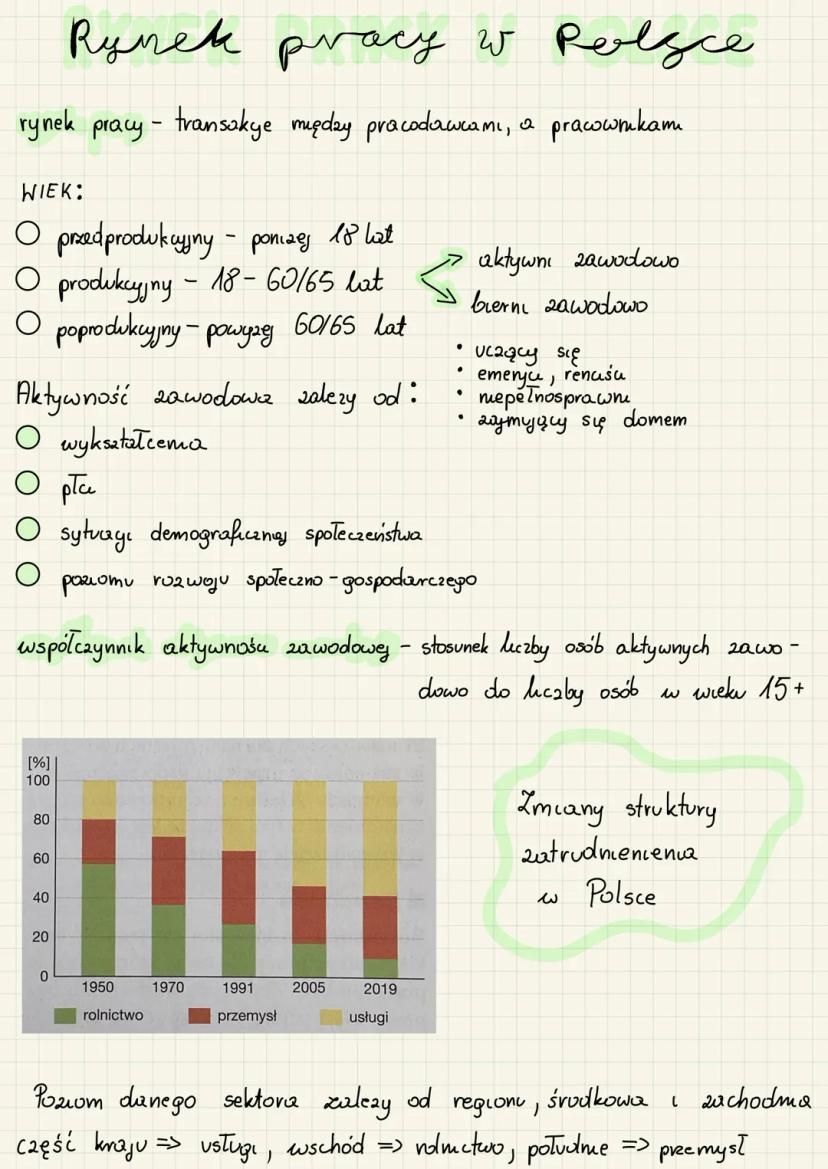 Rynek pracy w Polsce
rynek pracy - transakcje między pracodawcami, a pracownikami
WIEK:
przedprodukcyjny - poniżej 18 lat
produkcyjny - 18 - 60/65 lat
poprodukcyjny - powyżej 60/65 lat
aktywni zawodowo
bierni zawodowo
• uczący się
• emeryci, renciści
• niepełnosprawni
• zajmujący się domem
Aktywność zawodowa zależy od:
wykształcenia
płci
sytuacji demograficznej społeczeństwa
poziomu rozwoju społeczno-gospodarczego
współczynnik aktywności zawodowej - stosunek liczby osób aktywnych zawo-
dowo do liczby osób w wieku 15+
[%]
100
80
60
40
20
0
1950 1970 1991 2005 2019
rolnictwo przemysł usługi
Zmiany struktury
zatrudnienienia
w Polsce
Poziom danego sektora zależy od regionu, środkowa i zachodnia
część kraju => usługi, wschód => rolnictwo, południe => przemysł